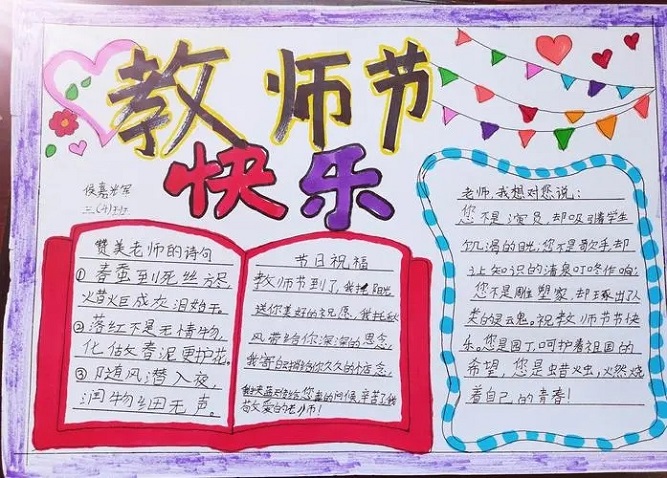 教师节
快乐
三(4)班
赞美老师的诗句
①春蚕到死丝方尽,
火昔火巨成灰泪始干。
②落红不是无情物,
化做春泥更护花。
③随风潜入夜,
润物细无声。
节日祝福
教师节到了,我把阳光
送你美好的祝愿,我托秋
风带给你深深的思念,
我寄白
老师,我想对您说:
您不是演员,却吸引着学生
饥渴的目光;您不是歌手,却
让知识的清泉叮咚作响;
您不是雕塑家,却琢出了人
类的灵魂。祝教师节节快
乐。您是园丁,呵护着祖国的
希望,您是蜡火虫,火然烧
着自己的青春!